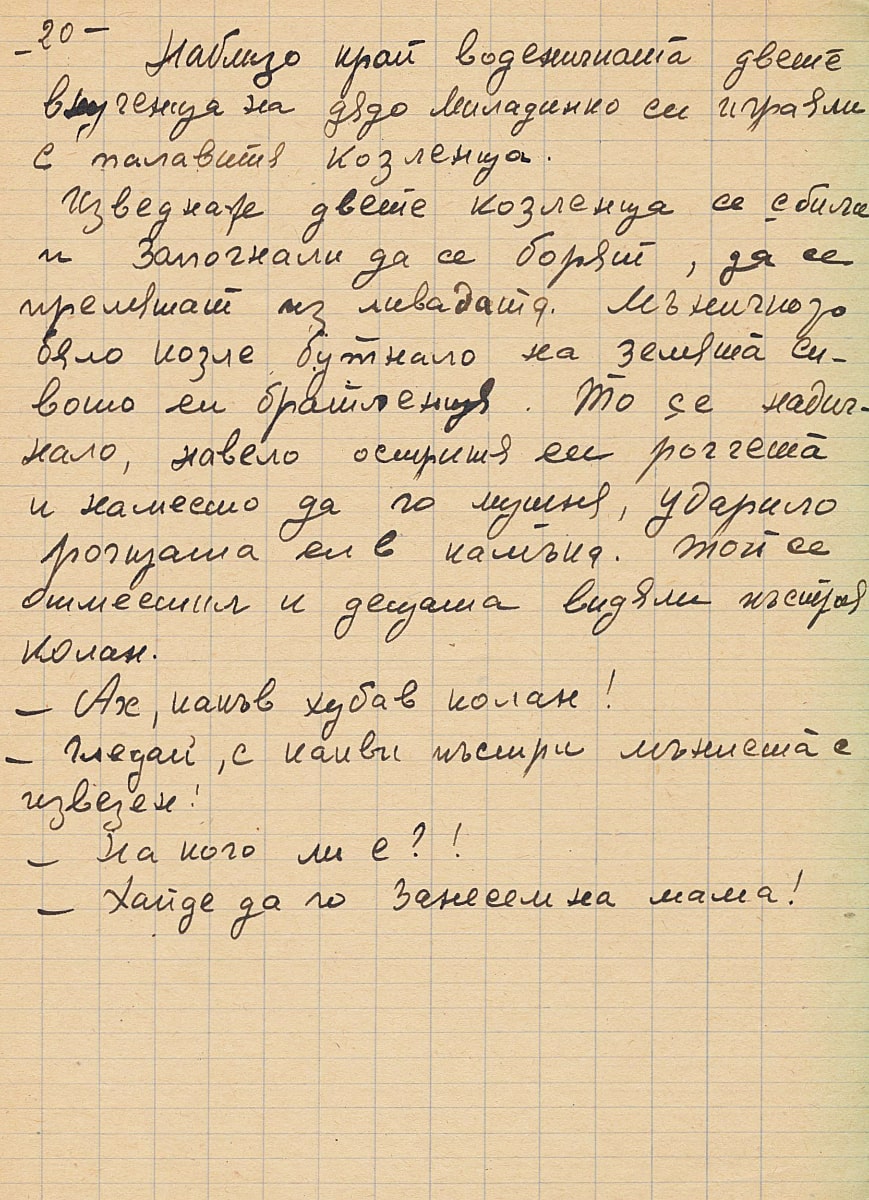 -20-
Наблизо край воденичната двете
внученца на дядо Миладинко си играяли
с палавитя козленца.
Изведнаж двете козленца се сбили
и започнали да се борят, да се
премятат из ливадата. Мъничкото
бяло козле бутнало на земята си-
вото си братленце. То се надиг-
нало, навело остритя си рогчета
и наместо да го мушня, ударило
рогцата си в камъка. Той се
отместил и децата видяли пъстрия
колан.
- Ах, какъв хубав колан!
- Гледай, с какви пъстри мъниста е
извезен!
- На кого ли е?!
- Хайде да го занесем на мама!